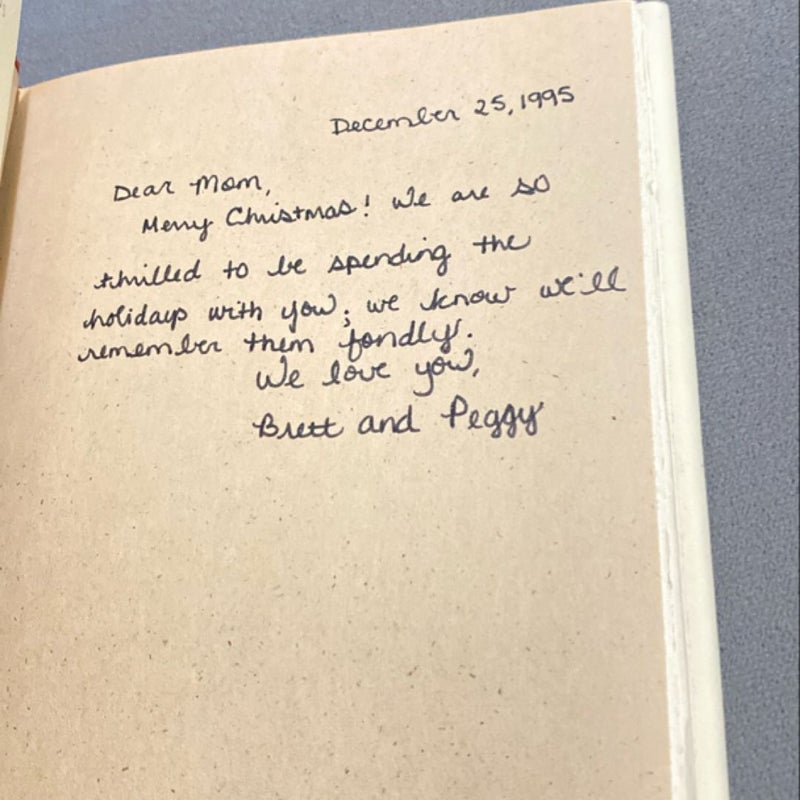 December 25, 1995
Dear Mom,
Merry Christmas! We are so
thrilled to be spending the
holidays with you; we know we'll
remember them fondly.
We love you,
Brett and Peggy